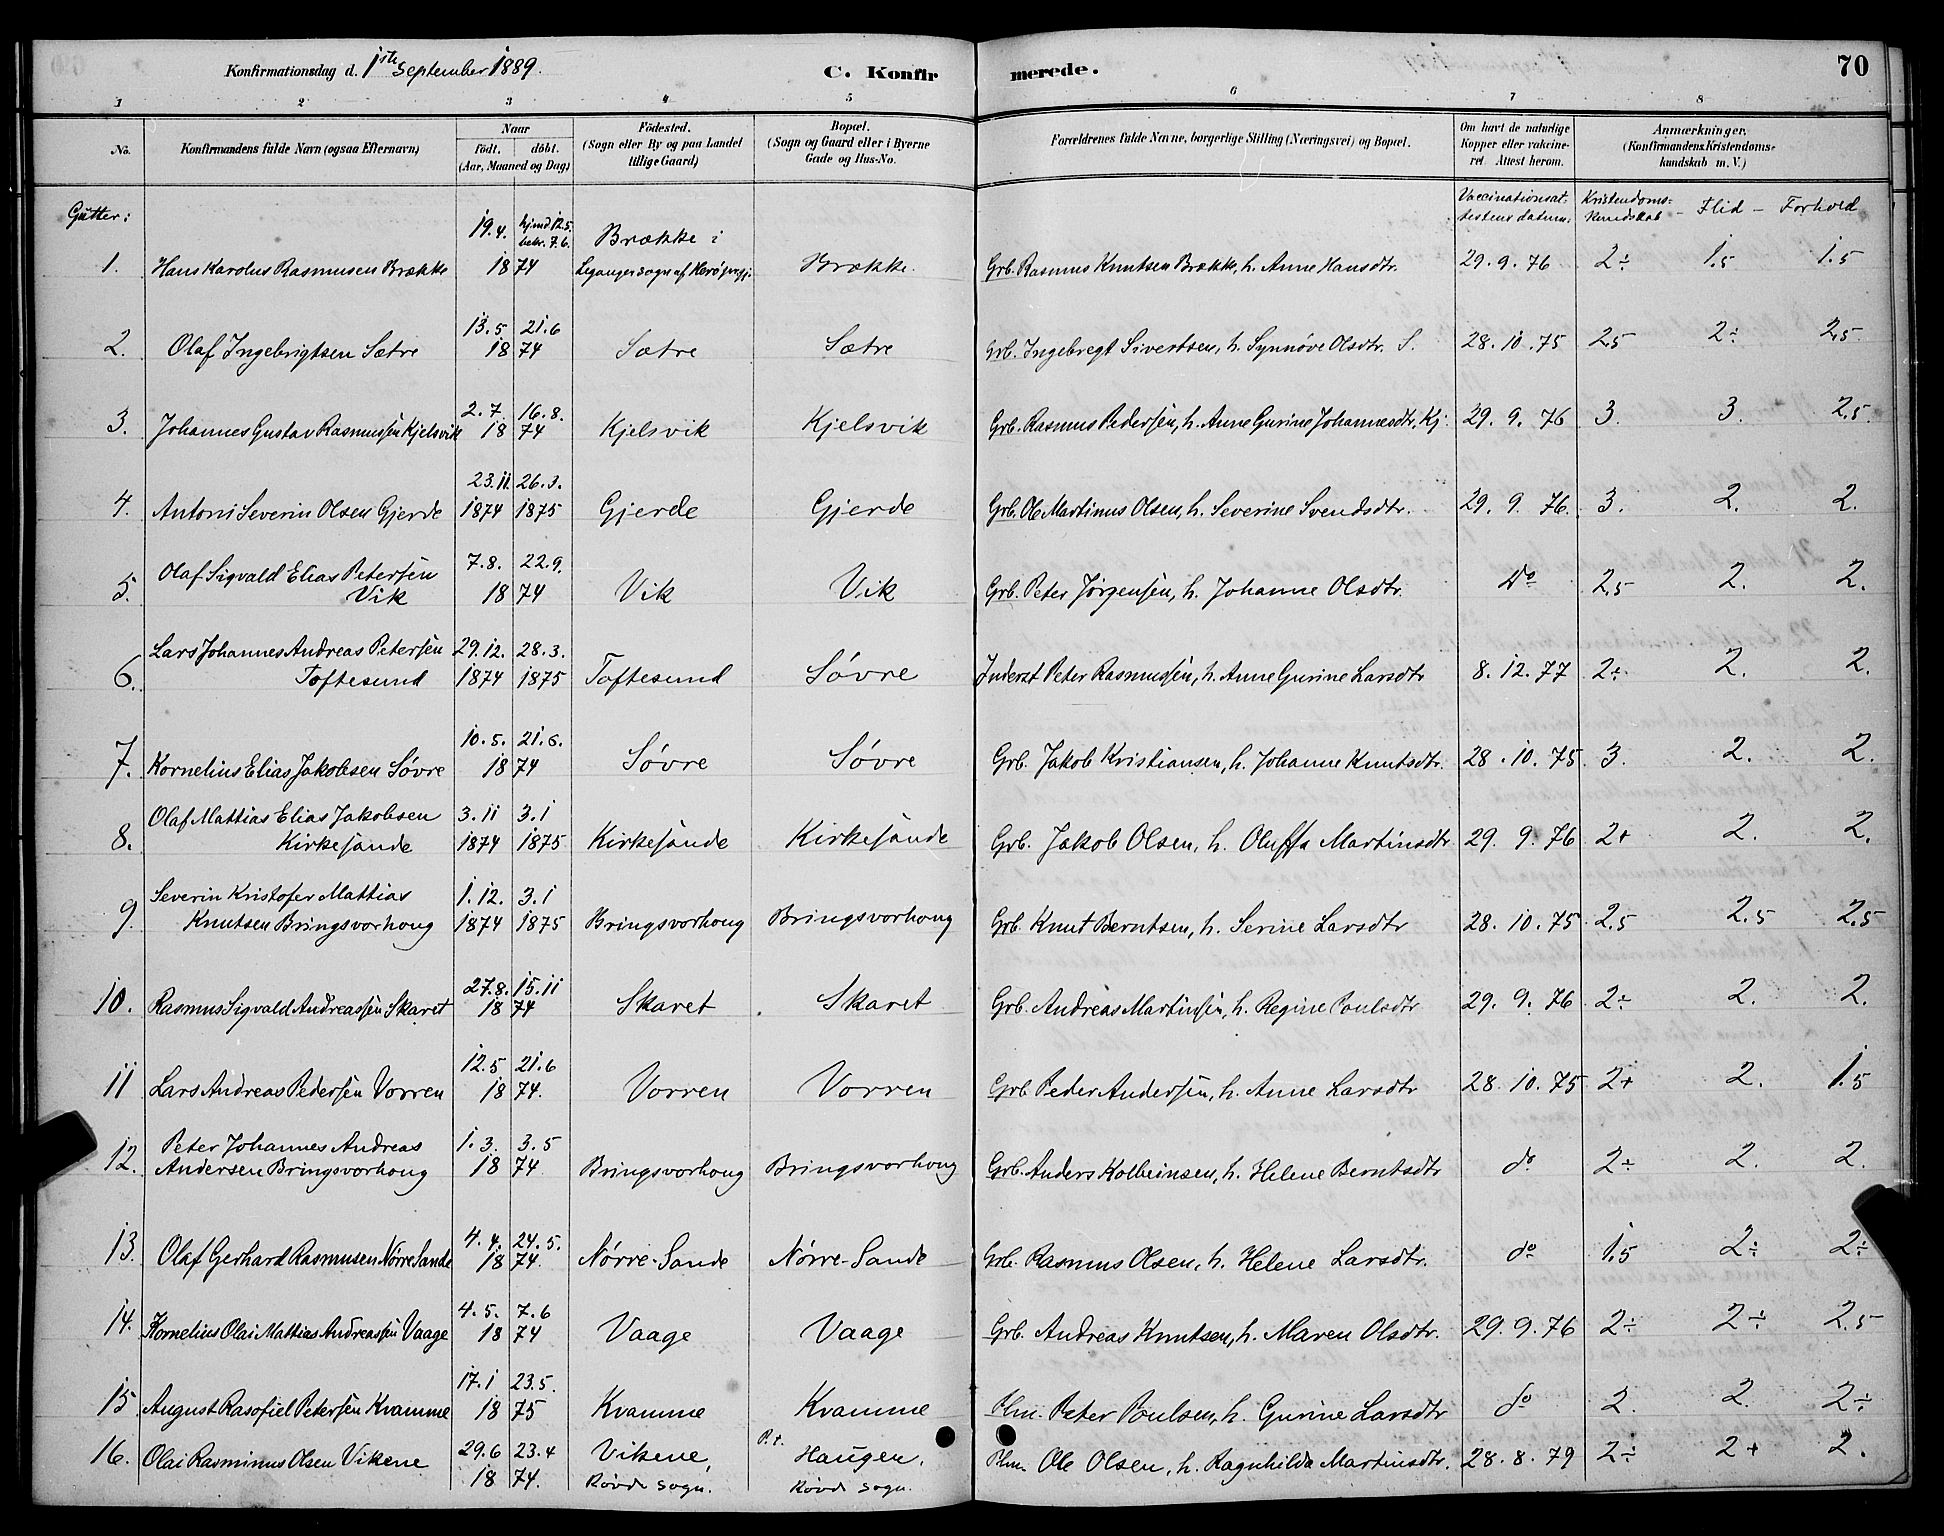 Konfirmationsdag d. 1ste September 1889. C. Konfirmerede. 70
1 2 3 4 5 6 7 8
No. Konfirmandens fulde Navn (ogsaa Efternavn) Naar födt. döbt. (Aar, Maaned og Dag) Födested. (Sogn eller By og paa Landet tillige Gaard) Bopæl. (Sogn og Gaard eller i Byerne Gade og Hus-No. Forældrenes fulde Navne, borgerlige Stilling (Næringsvei) og Bopæl. Om havt de naturlige Kopper eller vakcineret. Attest herom. Anmærkninger. (Konfirmandens Kristendomskundskab m. V.)
Gutter: Vaccinationsattestens datum. Kristendomskundskab - Flid - Forhold
19.4. hjmd 12.5. bekr. 7.6. Brække i
1. Hans Karolus Rasmusen Brække 18 74 Brække. Grb. Rasmus Knutsen Brække, h. Anne Hansdtr. 29.9.76 2÷ 1.5 1.5
13.5 21.6
2. Olaf Ingebrigtsen Sætre 18 74 Sætre Sætre Grb. Ingebregt Sivertsen, h. Synnöve Olsdtr. S. 28.10.75 2.5 2÷ 2.5
2.7. 16.8.
3. Johannes Gustav Rasmussen Kjelsvik 18 74 Kjelsvik Kjelsvik Grb. Rasmus Pedersen, h. Anne Gurine Johannesdtr. Kj. 29.9.76 3. 3. 2.5
23.11. 26.3.
4. Antoni Severin Olsen Gjerde 1874 1875 Gjerde Gjerde Grb. Ole Martinus Olsen, h. Severine Svendsdtr. 29.9.76. 3. 2. 2.
Olaf Sigvald Elias Petersen 7.8. 22.9.
5. Vik 18 74 Vik Vik Grb. Peter Jörgensen, h. Johanne Olsdtr. Do 2.5 2. 2.
Lars Johannes Andreas Petersen 29.12. 28.3.
6. Toftesund 1874 1875 Toftesund Sövre Inderst Peter Rasmussen, h. Anne Gurine Larsdtr 8.12.77 2÷ 2. 2.
10.5. 21.6.
7. Kornelius Elias Jakobsen Sövre 18 74 Sövre Sövre Grb. Jakob Kristiansen, h. Johanne Knutsdtr. 28.10.75 3. 2. 2.
Olaf Mattias Elias Jakobsen 3.11 3.1
8. Kirkesande 1874 1875 Kirkesande Kirkesande Grb. Jakob Olsen, h. Oluffa Martinsdtr 29.9.76 2+ 2. 2.
Severin Kristofer Mattias 1.12. 3.1
9. Knutsen Bringsvorhoug 1874 1875 Bringsvorhoug Bringsvorhoug Grb. Knut Berntsen, h. Serine Larsdtr 28.10.75 2.5 2.5 2.5
27.8. 15.11
10. Rasmus Sigvald Andreassen Skaret 18 74 Skaret Skaret Grb. Andreas Martinsen, h. Regine Poulsdtr 29.9.76 2÷ 2. 2.
12.5 21.6
11 Lars Andreas Pedersen Vorren 18 74. Vorren Vorren Grb Peder Andersen, h. Anne Larsdtr 28.10.75 2+ 2. 1.5
Peter Johannes Andreas 1.3. 3.5
12. Andersen Bringsvorhoug 18 74. Bringsvorhoug Bringsvorhoug Grb. Anders Kolbeinsen, h. Helene Berntsdtr do 2÷ 2. 2.
4.4. 24.5.
13. Olaf Gerhard Rasmusen Nörre Sande 18 74. Nörre-Sande Nörre-Sande Grb. Rasmus Olsen, h. Helene Larsdtr. do 1.5 2÷ 2÷
4.5. 7.6
14. Kornelius Olai Mattias Andreassen Vaage 18 74 Vaage Vaage Grb. Andreas Knutsen, h. Maren Olsdtr. 29.9.76 2÷ 2÷ 2.5
17.1 23.5.
15 August Rasofiel Petersen Kvamme 18 75 Kvamme Kvamme Plm. Peter Poulsen, h. Gurine Larsdtr do 2. 2. 2÷
16. Olai Rasminus Olsen Vikene 29.6 23.4 Vikene, P.t. Haugen, Plm. Ole Olsen, h. Ragnhilda Martinsdtr. 28.8.79 2÷ 2+ 2.
18 74. Rövde sogn. Rövde sogn.